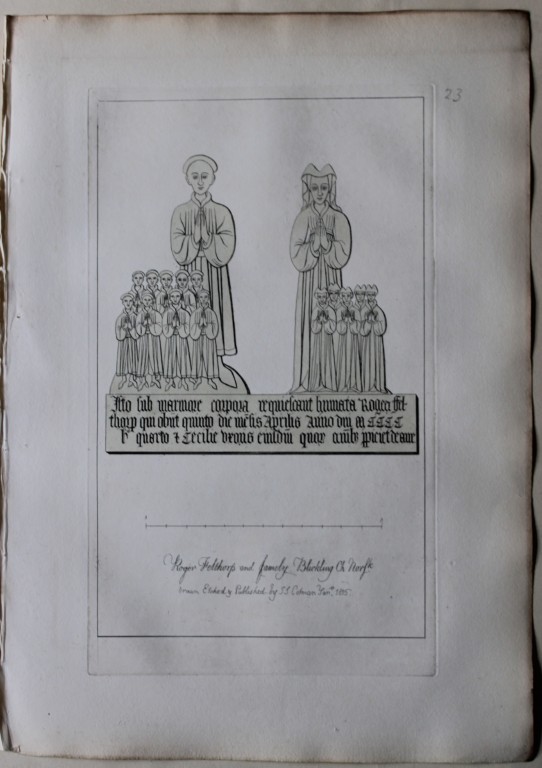 23
Isto sub marmore corpora requiescant humata Rogeri fil
thorp qui obiit quinto die mēsis Aprilis Anno dni M CCCC
quarto & Cecilie uxoris eiusdm quor
Roger Felthorp and family Blickling Ch Norfk
Drawn Etched & Published by J S Cotman 1815